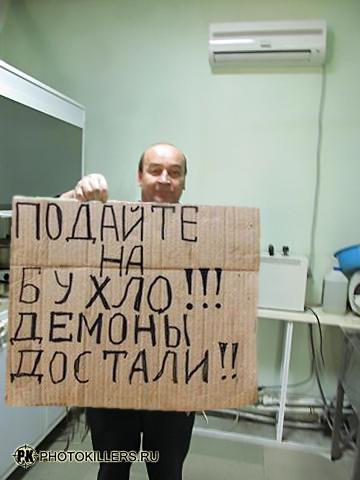 ПОДАЙТЕ
НА
БУХЛО!!!
ДЕМОНЫ
ДОСТАЛИ!!
PK PHOTOKILLERS.RU